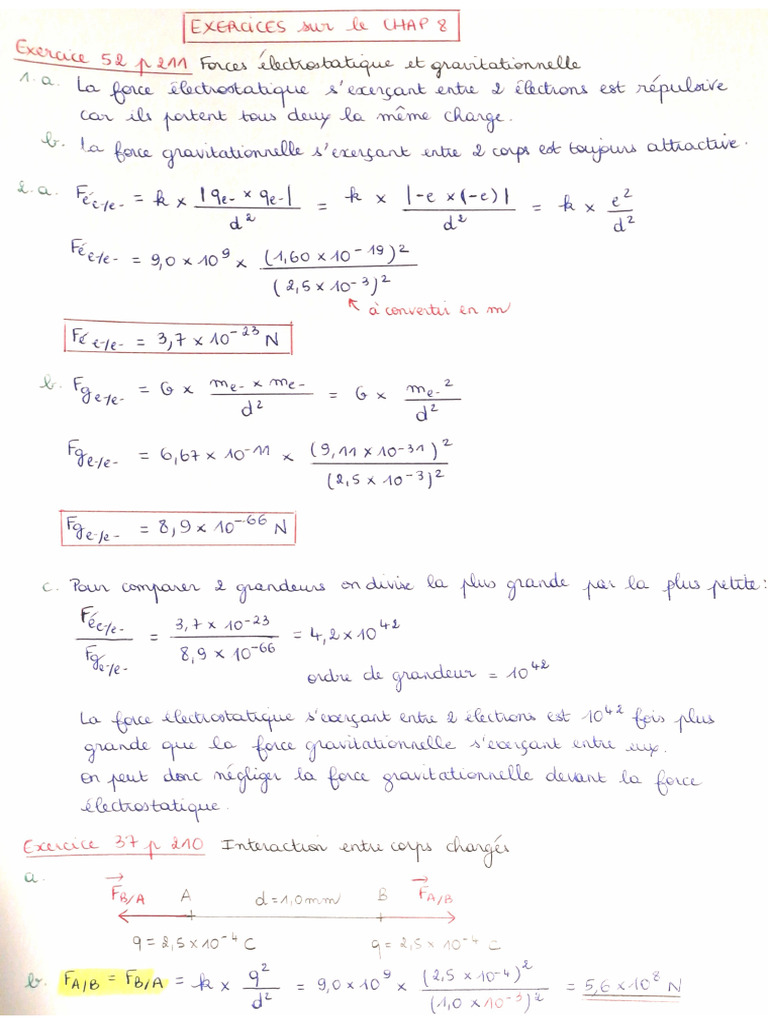 EXERCICES sur le CHAP 8
Exercice 52 p 211 Forces électrostatique et gravitationnelle
1.a. La force électrostatique s'exerçant entre 2 électrons est répulsive
car ils portent tous deux la même charge.
b. La force gravitationnelle s'exerçant entre 2 corps est toujours attractive.
2.a. Fé e-/e- = k × |qe- × qe-| / d² = k × |-e × (-e)| / d² = k × e² / d²
Fé e-/e- = 9,0 × 10⁹ × (1,60 × 10-19)² / (2,5 × 10-3)²
à convertir en m
Fé e-/e- = 3,7 × 10⁻²³ N
b. Fg e-/e- = G × me- × me- / d² = G × me-² / d²
Fg e-/e- = 6,67 × 10⁻¹¹ × (9,11 × 10⁻³¹)² / (2,5 × 10⁻³)²
Fg e-/e- = 8,9 × 10⁻⁶⁶ N
c. Pour comparer 2 grandeurs on divise la plus grande par la plus petite :
Fé e-/e- / Fg e-/e- = 3,7 × 10⁻²³ / 8,9 × 10⁻⁶⁶ = 4,2 × 10⁴²
ordre de grandeur = 10⁴²
La force électrostatique s'exerçant entre 2 électrons est 10⁴² fois plus
grande que la force gravitationnelle s'exerçant entre eux.
On peut donc négliger la force gravitationnelle devant la force
électrostatique.
Exercice 37 p 210 Interaction entre corps chargés
a.
F⃗B/A A d = 1,0 mm B F⃗A/B
q = 2,5 × 10⁻⁴ C q = 2,5 × 10⁻⁴ C
b. FA/B = FB/A = k × q² / d² = 9,0 × 10⁹ × (2,5 × 10-4)² / (1,0 × 10-3)² = 5,6 × 10⁸ N